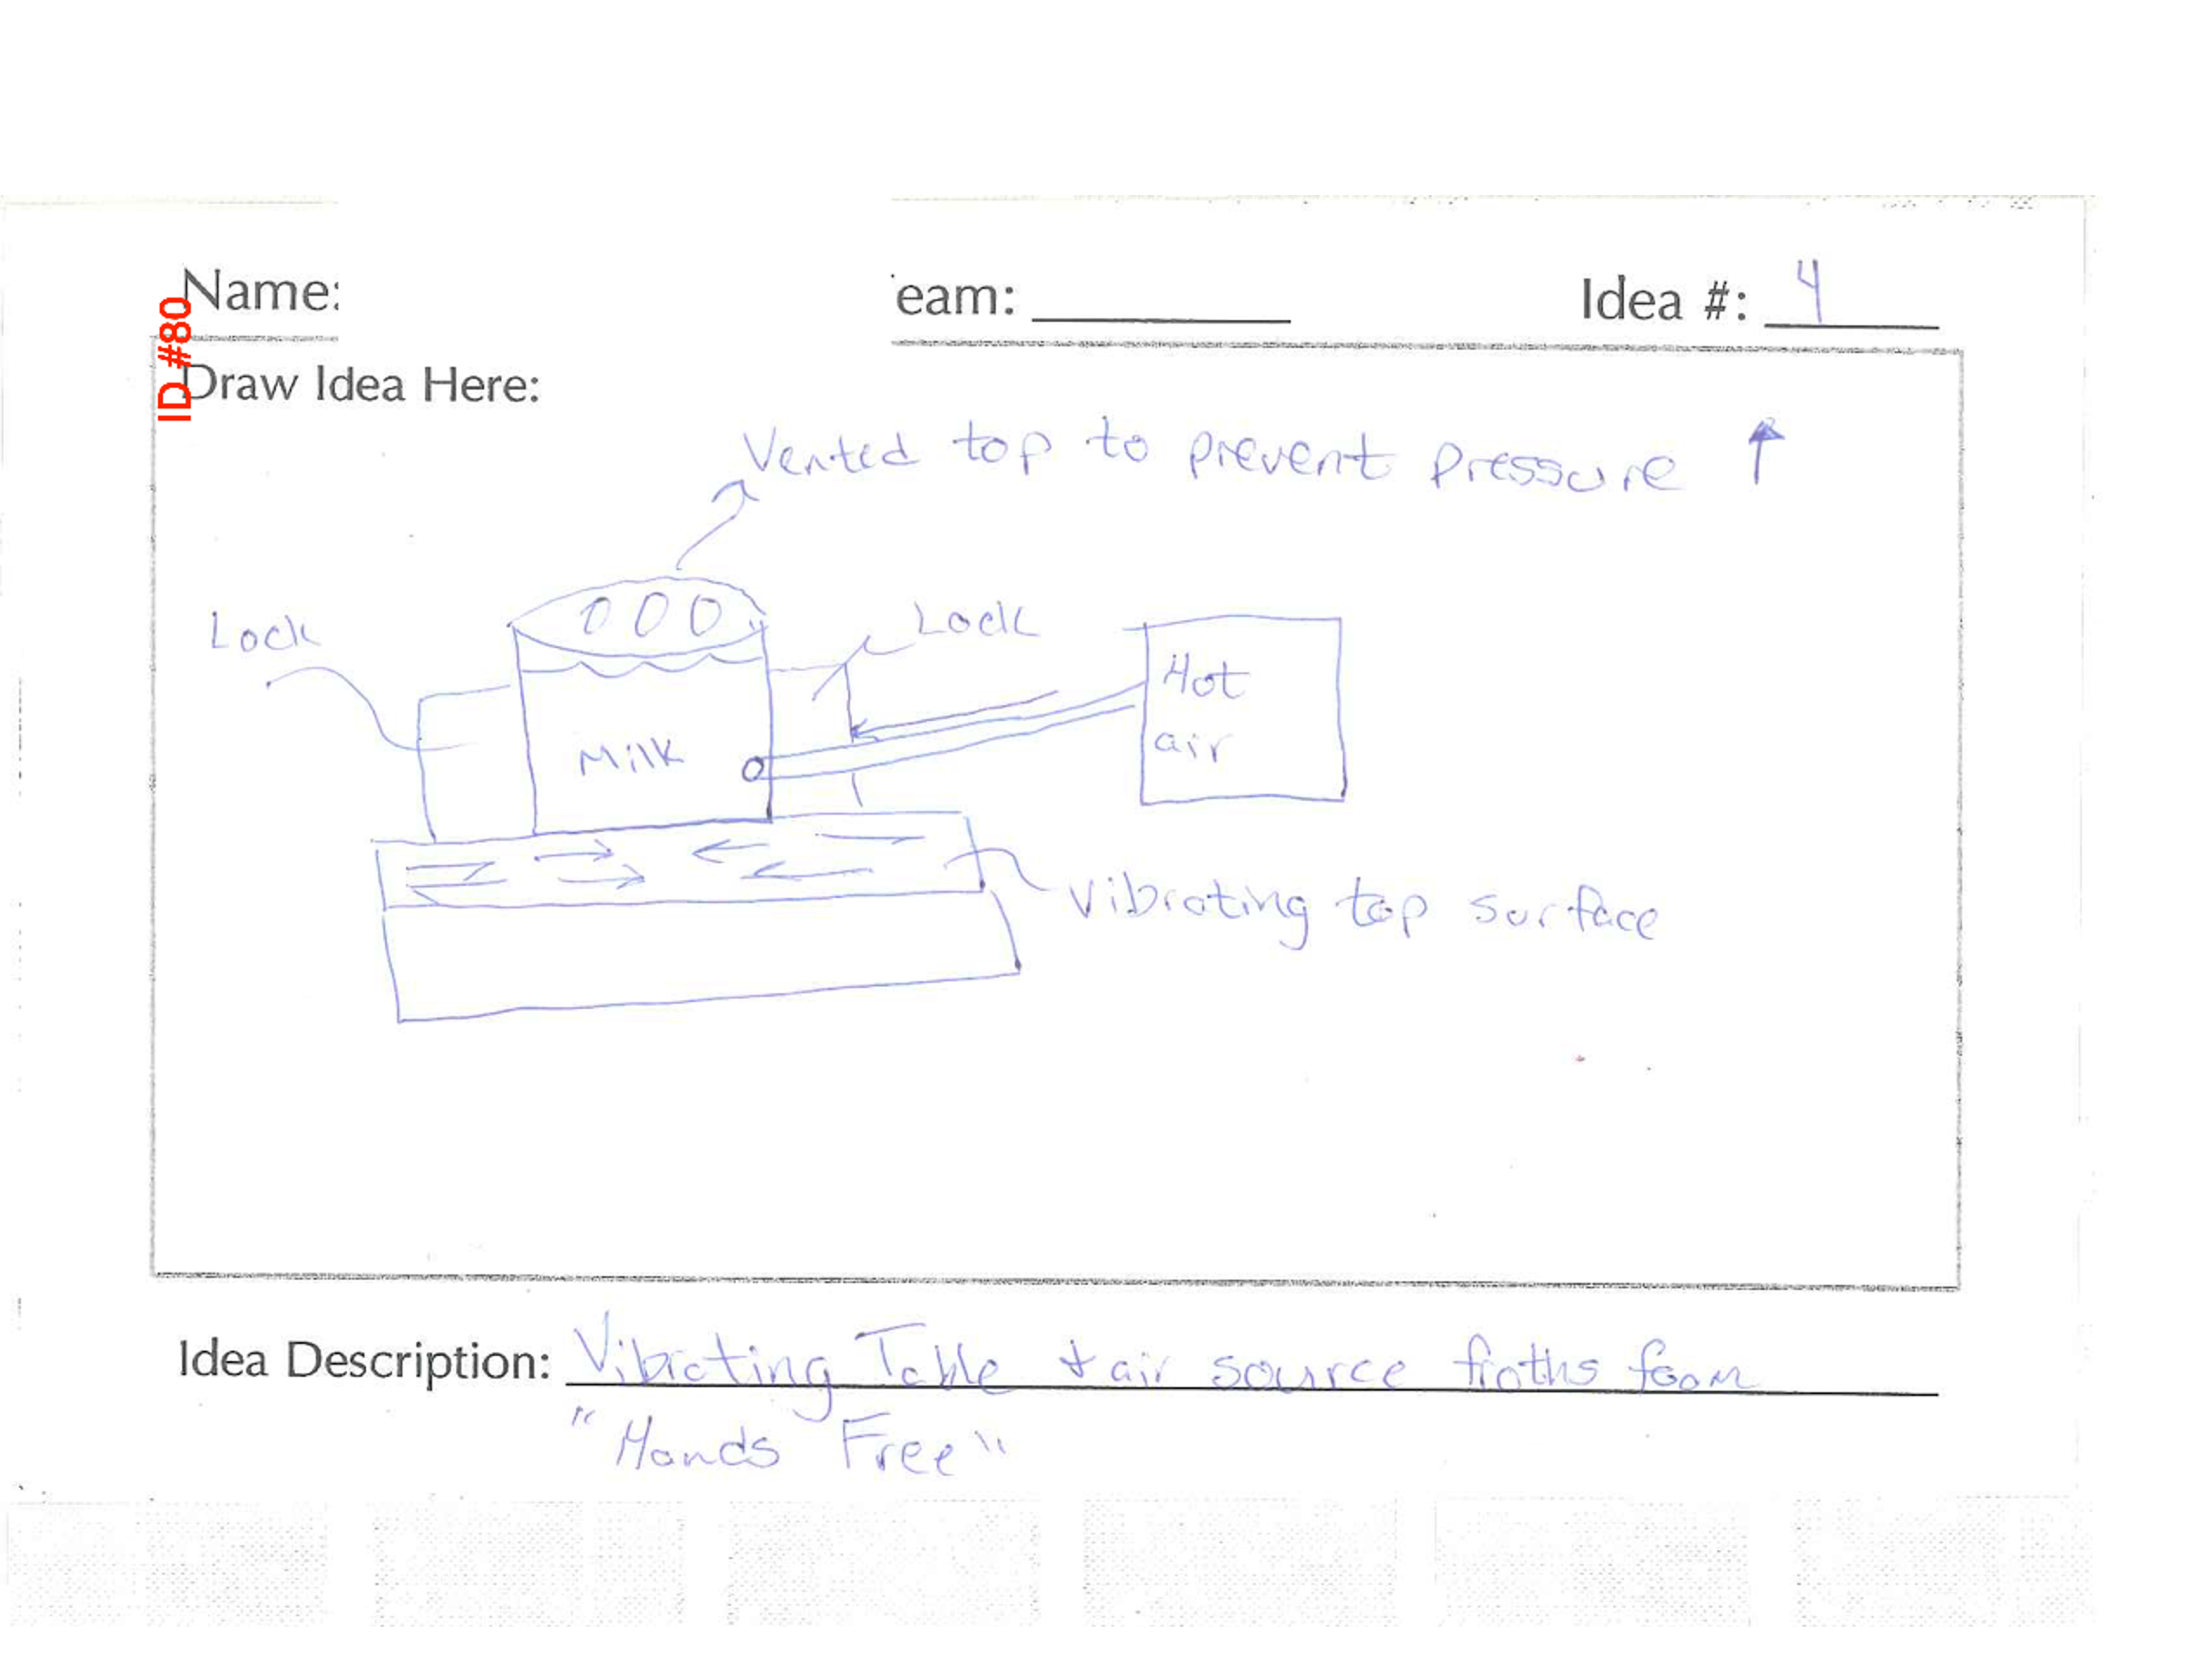 Name: eam: Idea #: 4
ID #80
Draw Idea Here:
Vented top to prevent pressure ↑
Lock
Lock
Hot
air
Milk
Vibrating top surface
Idea Description: Vibrating Table + air source froths foam
"Hands Free"